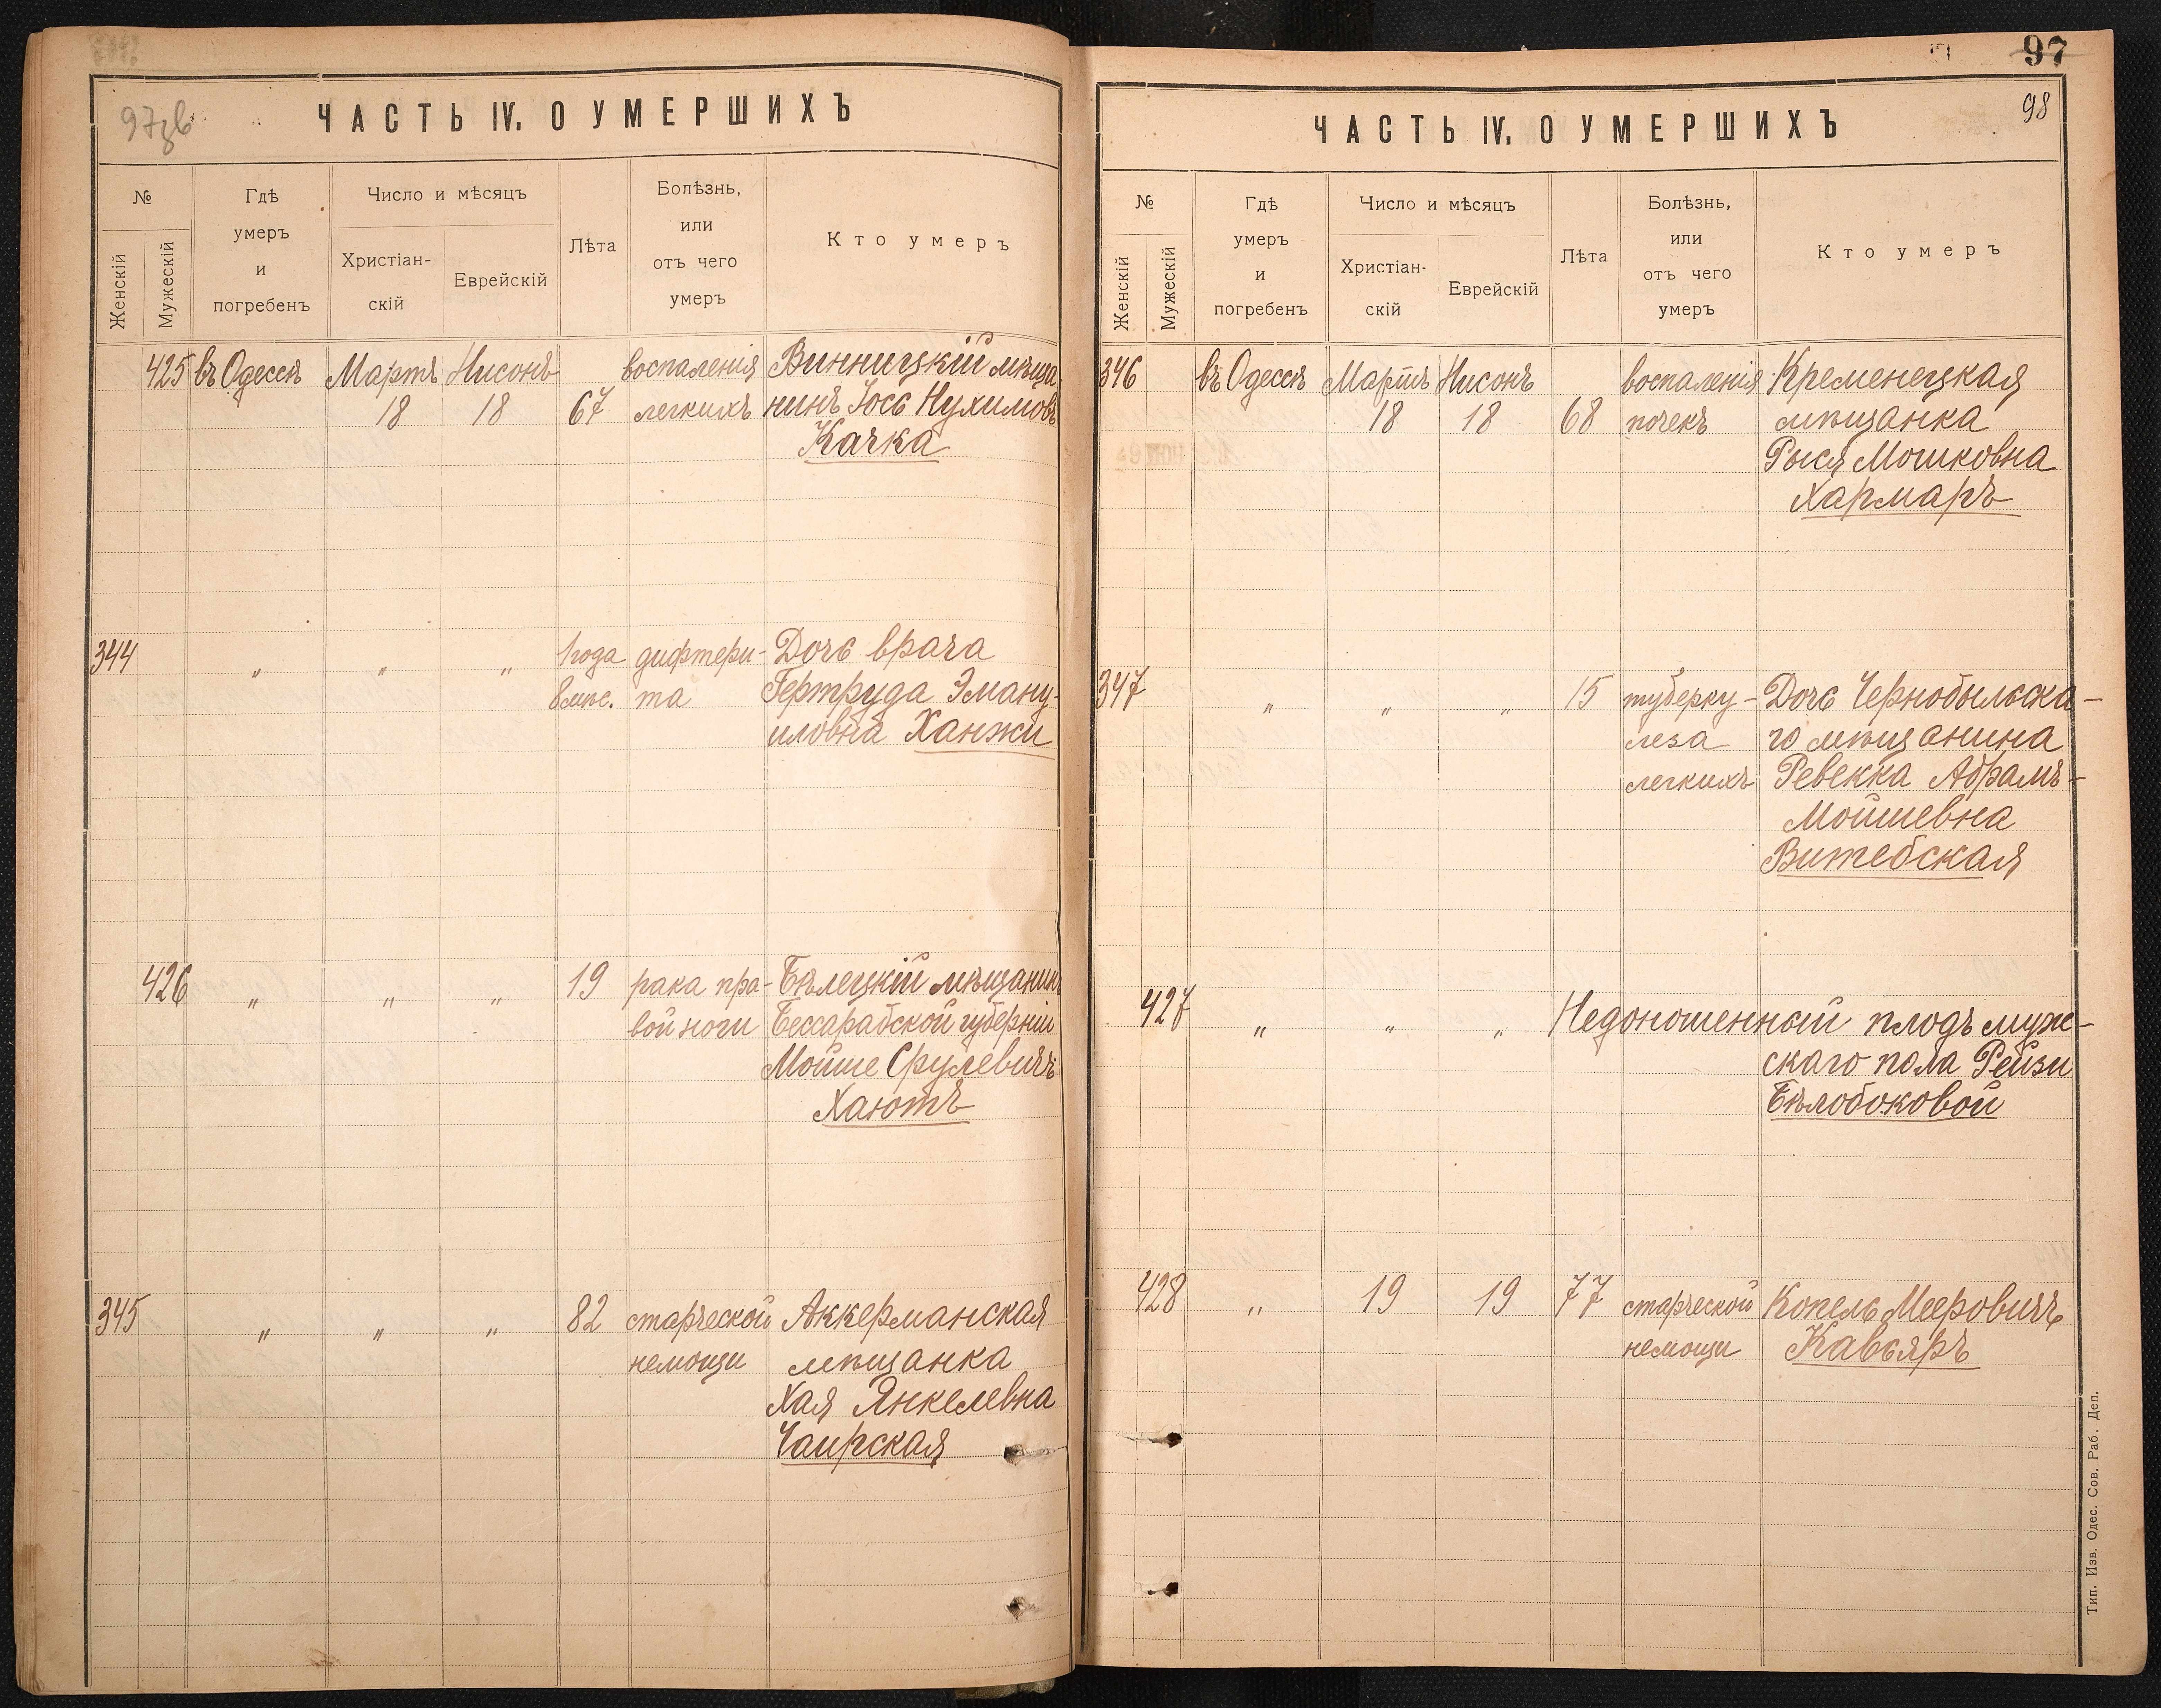 97зв
ЧАСТЬ IV. О УМЕРШИХЪ
№
Женскій
Мужескій
Гдѣ
умеръ
и
погребенъ
Число и мѣсяцъ
Христіан-
скій
Еврейскій
Лѣта
Болѣзнь,
или
отъ чего
умеръ
Кто умеръ
425 въ Одессѣ Мартъ Нисонъ воспаленія Винницкій мѣща-
18 18 67 легкихъ нинъ Іось Нухимовъ
Качка
344 „ „ „ 1 года дифтери- Дочь врача
8 мѣс. та Гертруда Эману-
иловна Ханжи
426 „ „ „ 19 рака пра- Бѣлецкій мѣщанинъ
вой ноги Бессарабской губерніи
Мойше Срулевичъ
Хаютъ
345 „ „ „ 82 старческой Аккерманская
немощи мѣщанка
Хая Янкелевна
Чаирская
97
98
ЧАСТЬ IV. О УМЕРШИХЪ
№
Женскій
Мужескій
Гдѣ
умеръ
и
погребенъ
Число и мѣсяцъ
Христіан-
скій
Еврейскій
Лѣта
Болѣзнь,
или
отъ чего
умеръ
Кто умеръ
346 въ Одессѣ Мартъ Нисонъ воспаленія Кременецкая
18 18 68 почекъ мѣщанка
Рыся Мошковна
Хармаръ
347 „ „ „ 15 туберку- Дочь Чернобыльска-
леза го мѣщанина
легкихъ Ревекка Абрамъ-
Мойшевна
Витебская
427 „ „ „ Недоношенный плодъ муж-
скаго пола Рейзи
Бѣлобоковой
428 „ 19 19 77 старческой Копель Мееровичъ
немощи Кавьяръ
Тип. Изв. Одес. Сов. Раб. Деп.